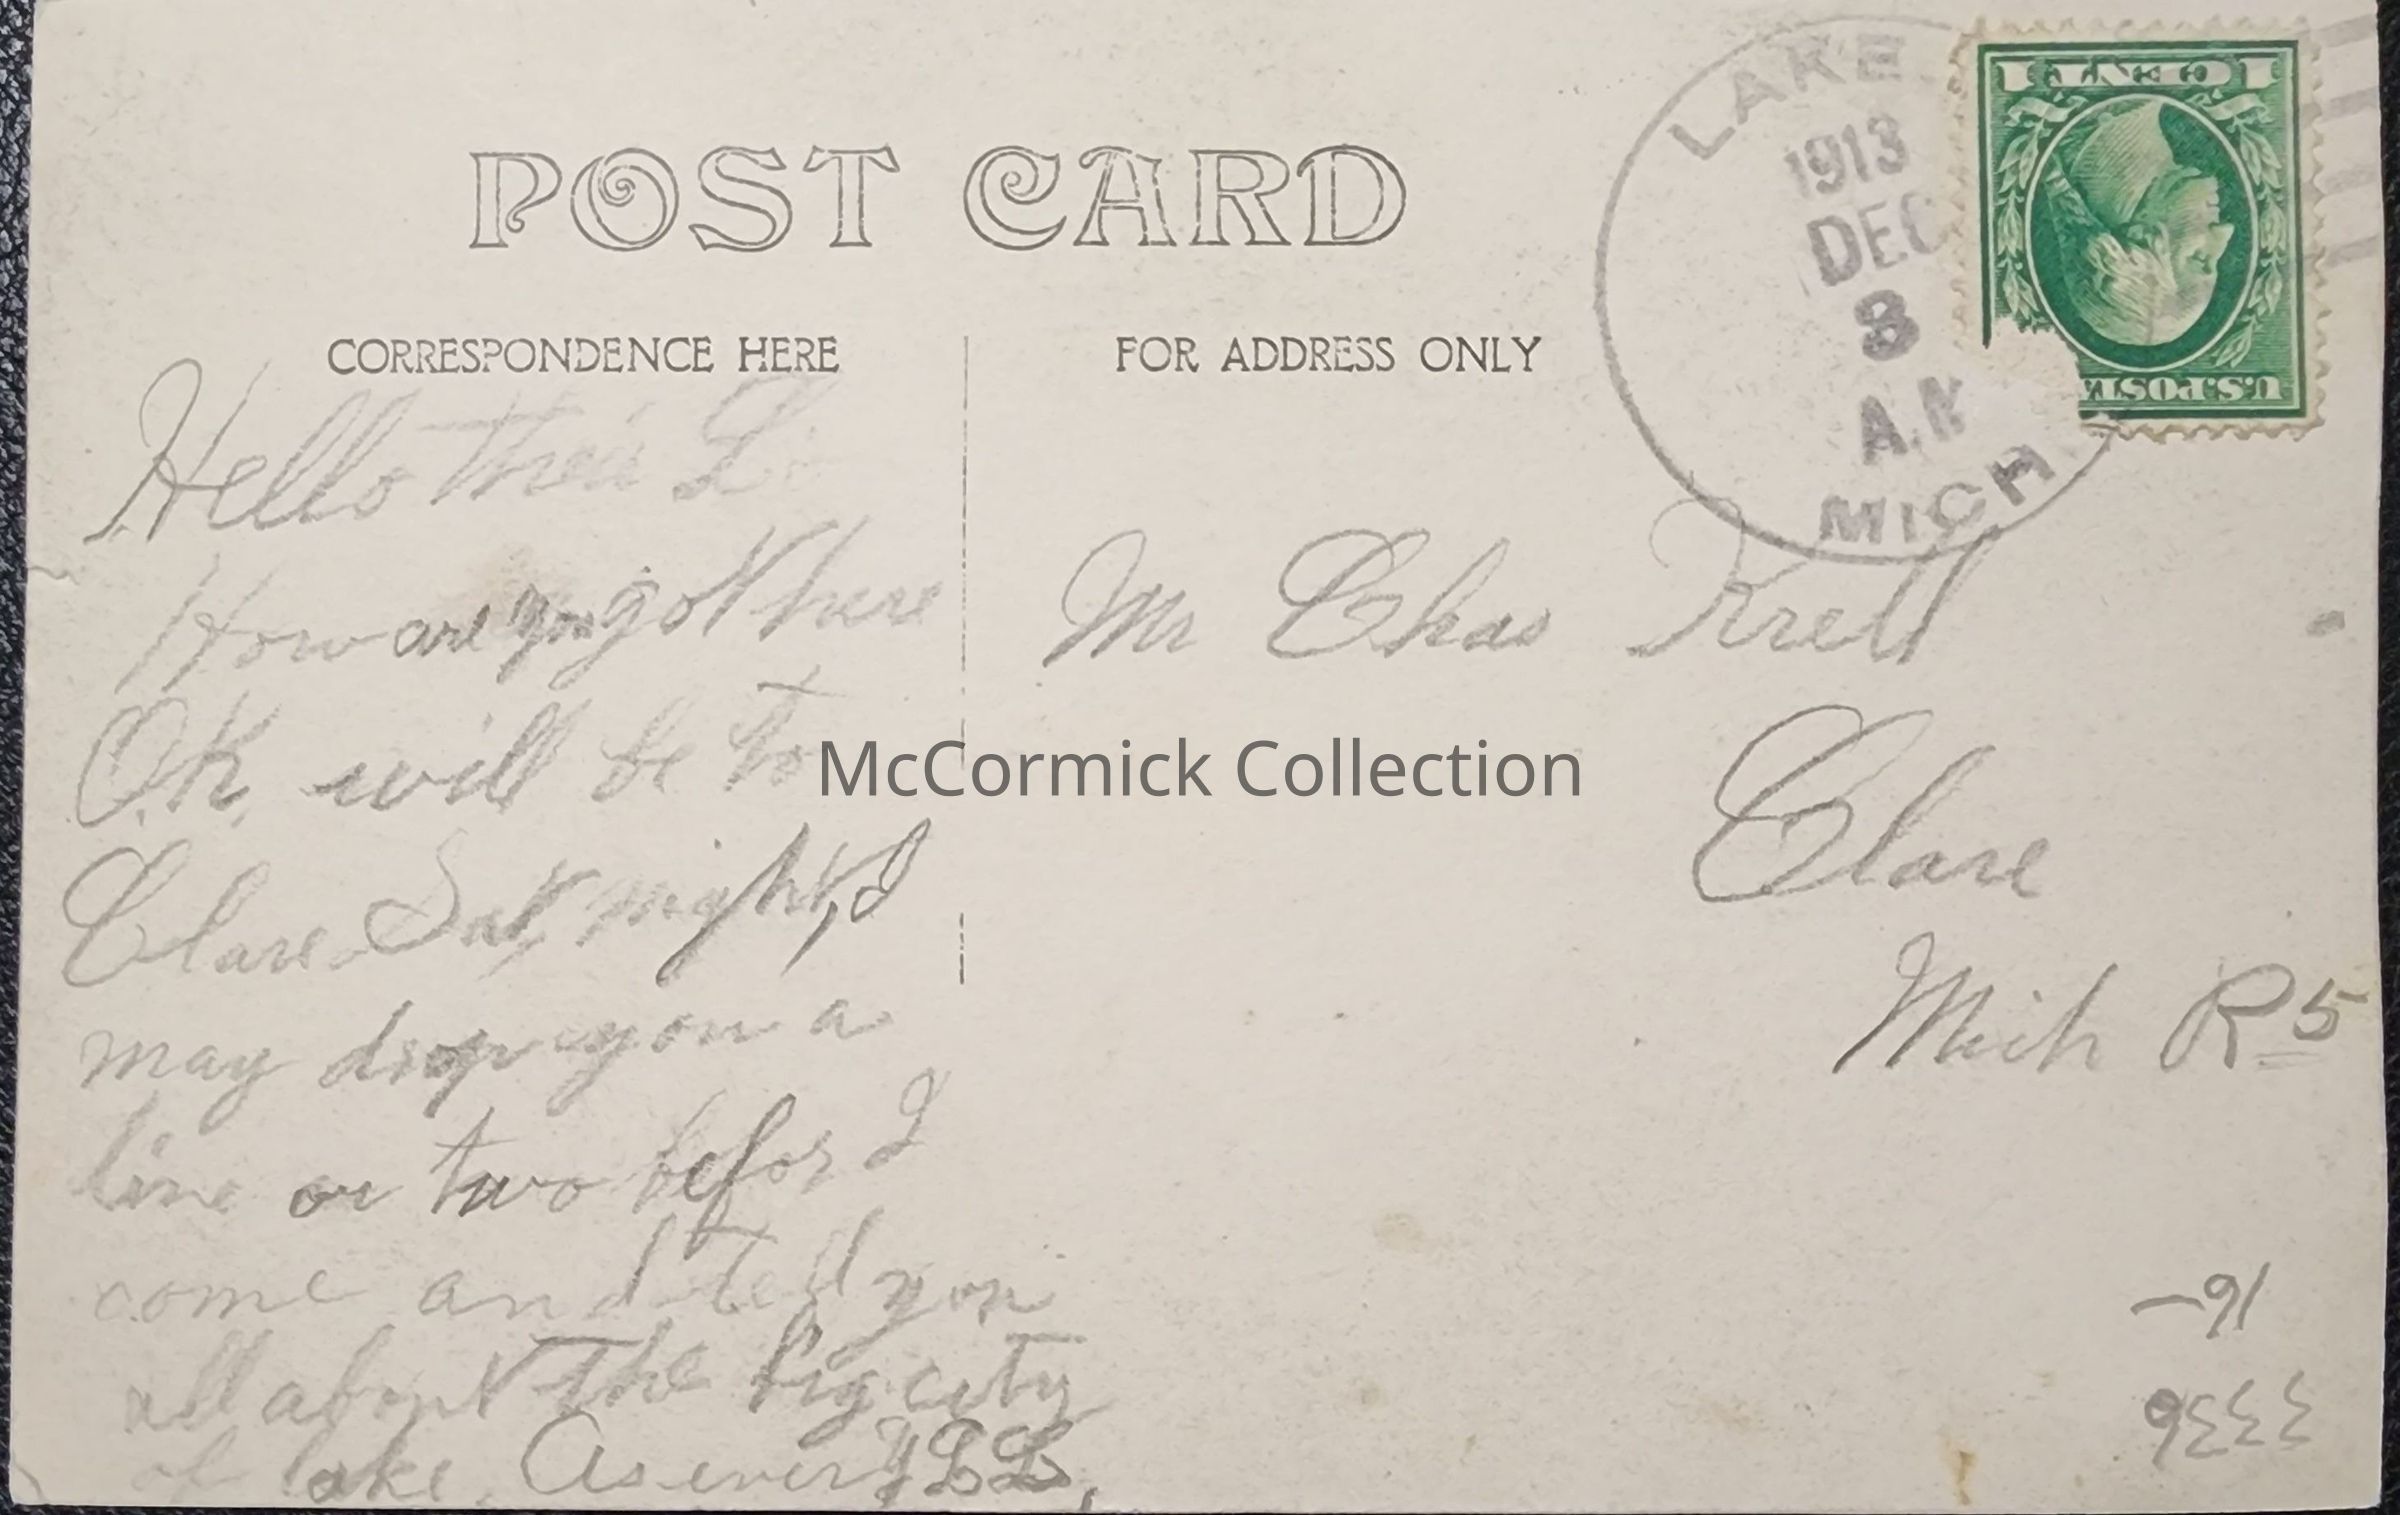 POST CARD
CORRESPONDENCE HERE
FOR ADDRESS ONLY
LAKE
1913
DEC
3
A.M
MICH
1 CENT 1
U.S. POSTA
Hello
How are you got here
O.K. will be to
Clare Sat, night, I
may drop you a
line or two befor I
come and tell you
all about the big city
of Lake. As ever
Mr Chas Krell
Clare
Mich R 5
McCormick Collection